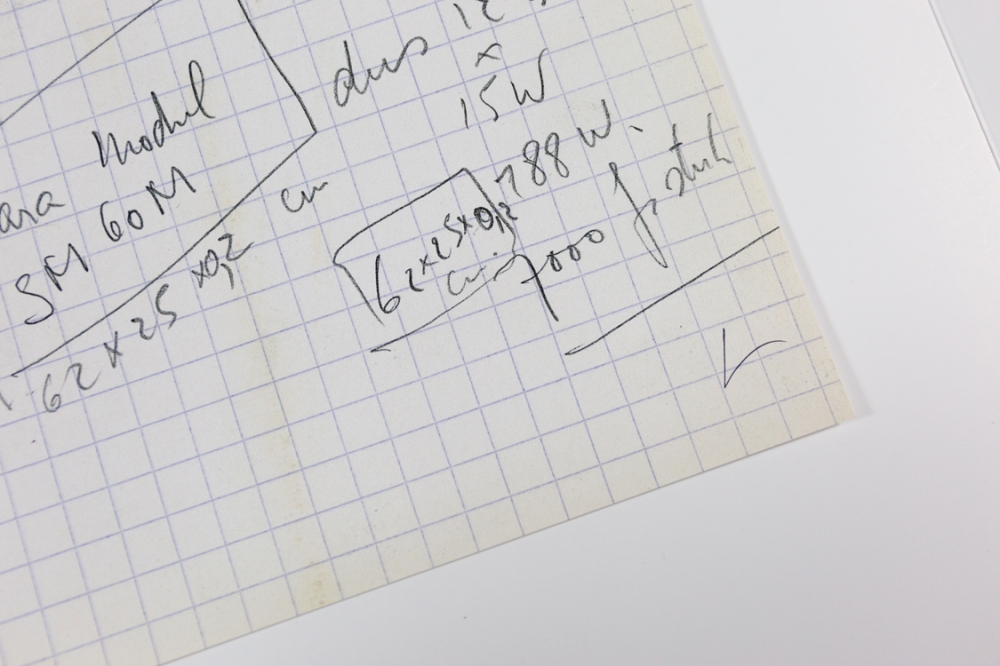 ara Modul
SM 60M
62 x 25 x 0,2 cm
dus 12
x
15W
188 W
62 x 25 x 0,2
cm
7000